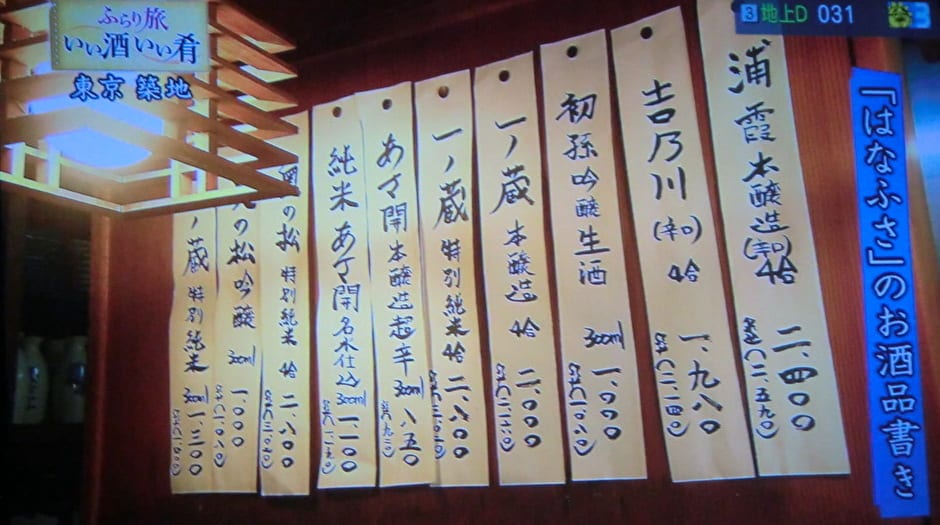 ふらり旅
いい酒いい肴
東京 築地
3 地上D 031
「はなふさ」のお酒品書き
浦霞本醸造(辛口)4合 二、四〇〇
(二、五九〇)
吉乃川(辛口)4合 一、九八〇
(二、一四〇)
初孫吟醸生酒 300ml 一、〇〇〇
(一、〇八〇)
一ノ蔵本醸造 4合 二、〇〇〇
一ノ蔵特別純米4合 二、八〇〇
あさ開本醸造超辛 300ml 八五〇
純米あさ開名水仕込 300ml 一、一〇〇
の松 特別純米 4合 二、八〇〇
の松吟醸 300ml 一、〇〇〇
ノ蔵特別純米 300ml 一、三〇〇